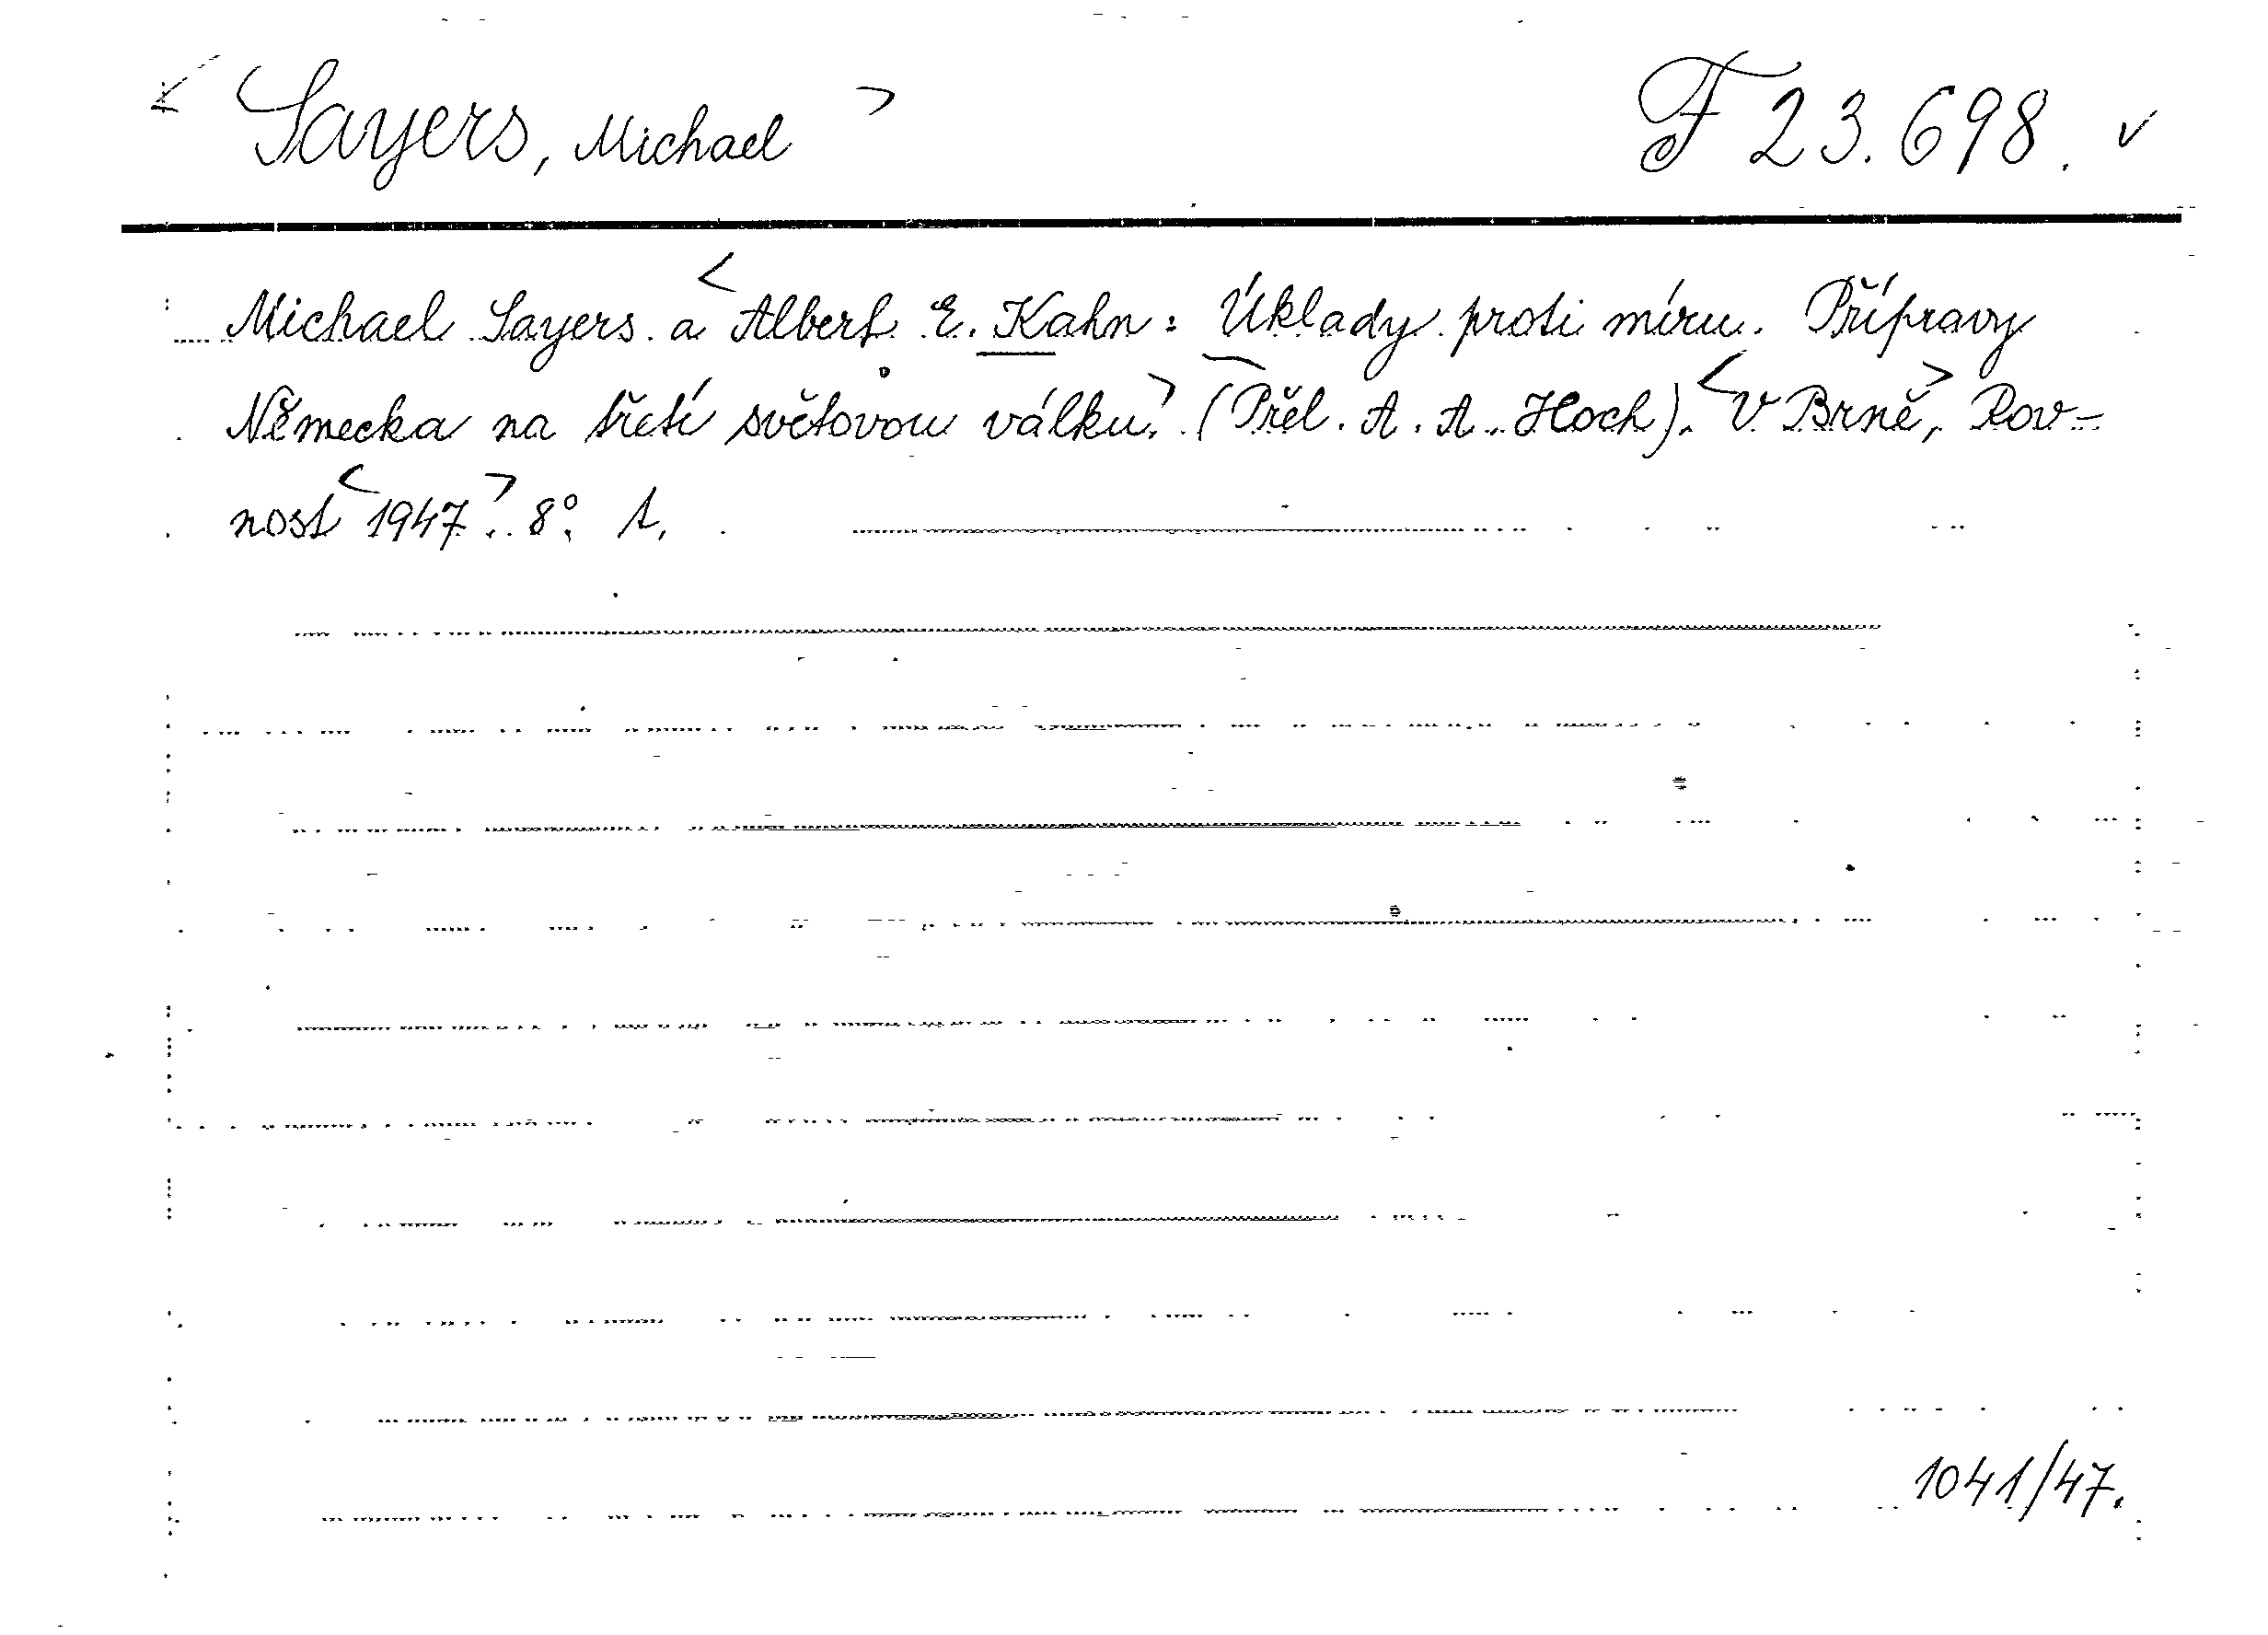 Sayers, Michael
F 23.698.
Michael Sayers a Albert E. Kahn: Úklady proti míru. Přípravy
Německa na třetí světovou válku. (Přel. A. A. Hoch). V Brně, Rov-
nost 1947. 8°. 1.
1041/47.